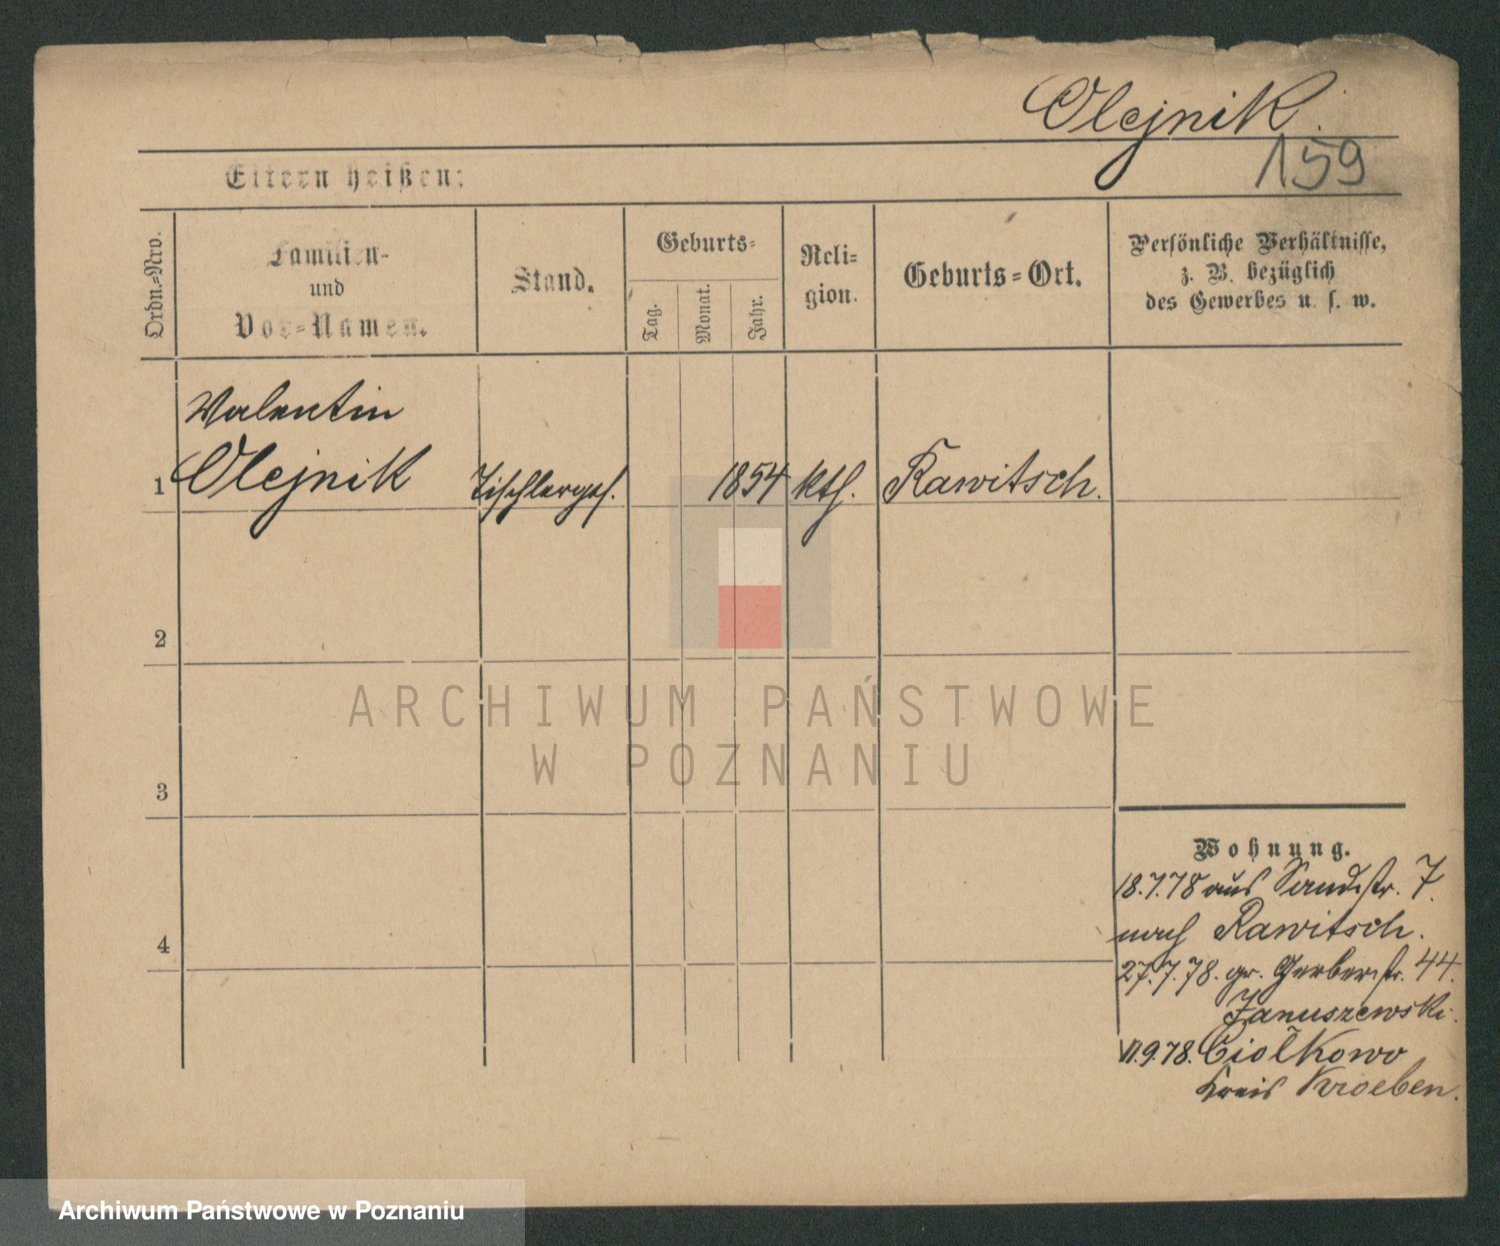 Olejnik.
159
Eltern heißen:
Ordn.=Nro.
Familien-
und
Vor=Namen.
Stand.
Geburts=
Tag.
Monat.
Jahr.
Reli=
gion.
Geburts=Ort.
Persönliche Verhältnisse,
z. B. bezüglich
des Gewerbes u. s. w.
Valentin
1 Olejnik Tischlerges. 1854 kth. Rawitsch.
2
3
4
Wohnung.
18.7.78 aus Sandstr. 7.
nach Rawitsch.
27.7.78. gr. Gerberstr. 44.
Januszewski.
9.78. Ciołkowo
Kreis Kroeben.
ARCHIWUM PAŃSTWOWE
W POZNANIU
Archiwum Państwowe w Poznaniu